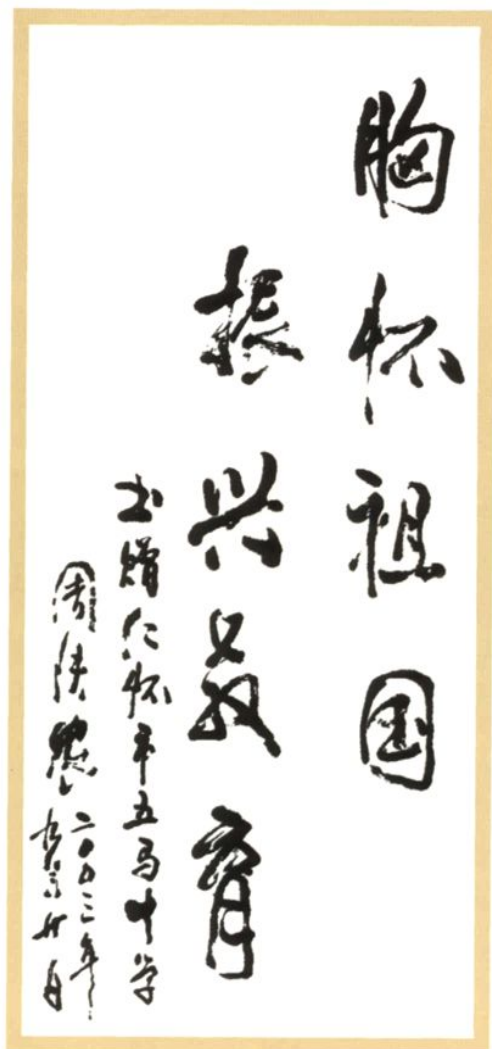 胸怀祖国
振兴教育
书赠仁怀市五马中学
周
二〇〇三年